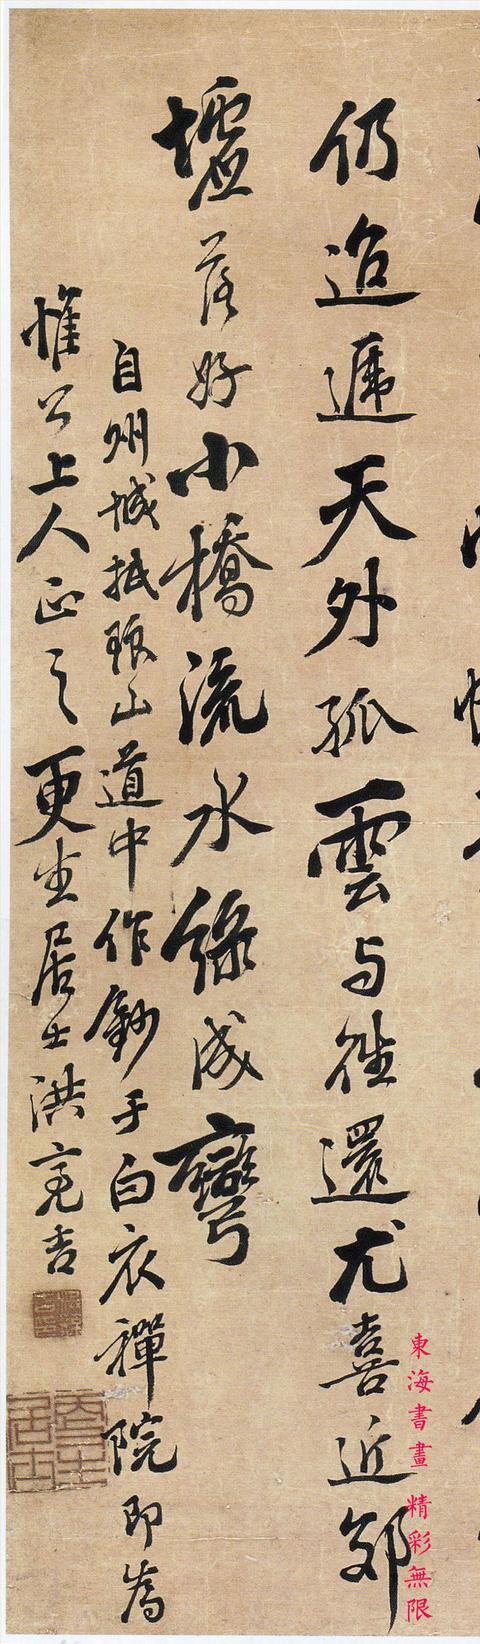 仍迢遞天外孤雲与往還尤喜近郊
墟落好小橋流水緑成彎
自州城抵琅山道中作鈔于白衣禪院即為
惟公上人正之更生居士洪亮吉
東海書畫 精彩無限